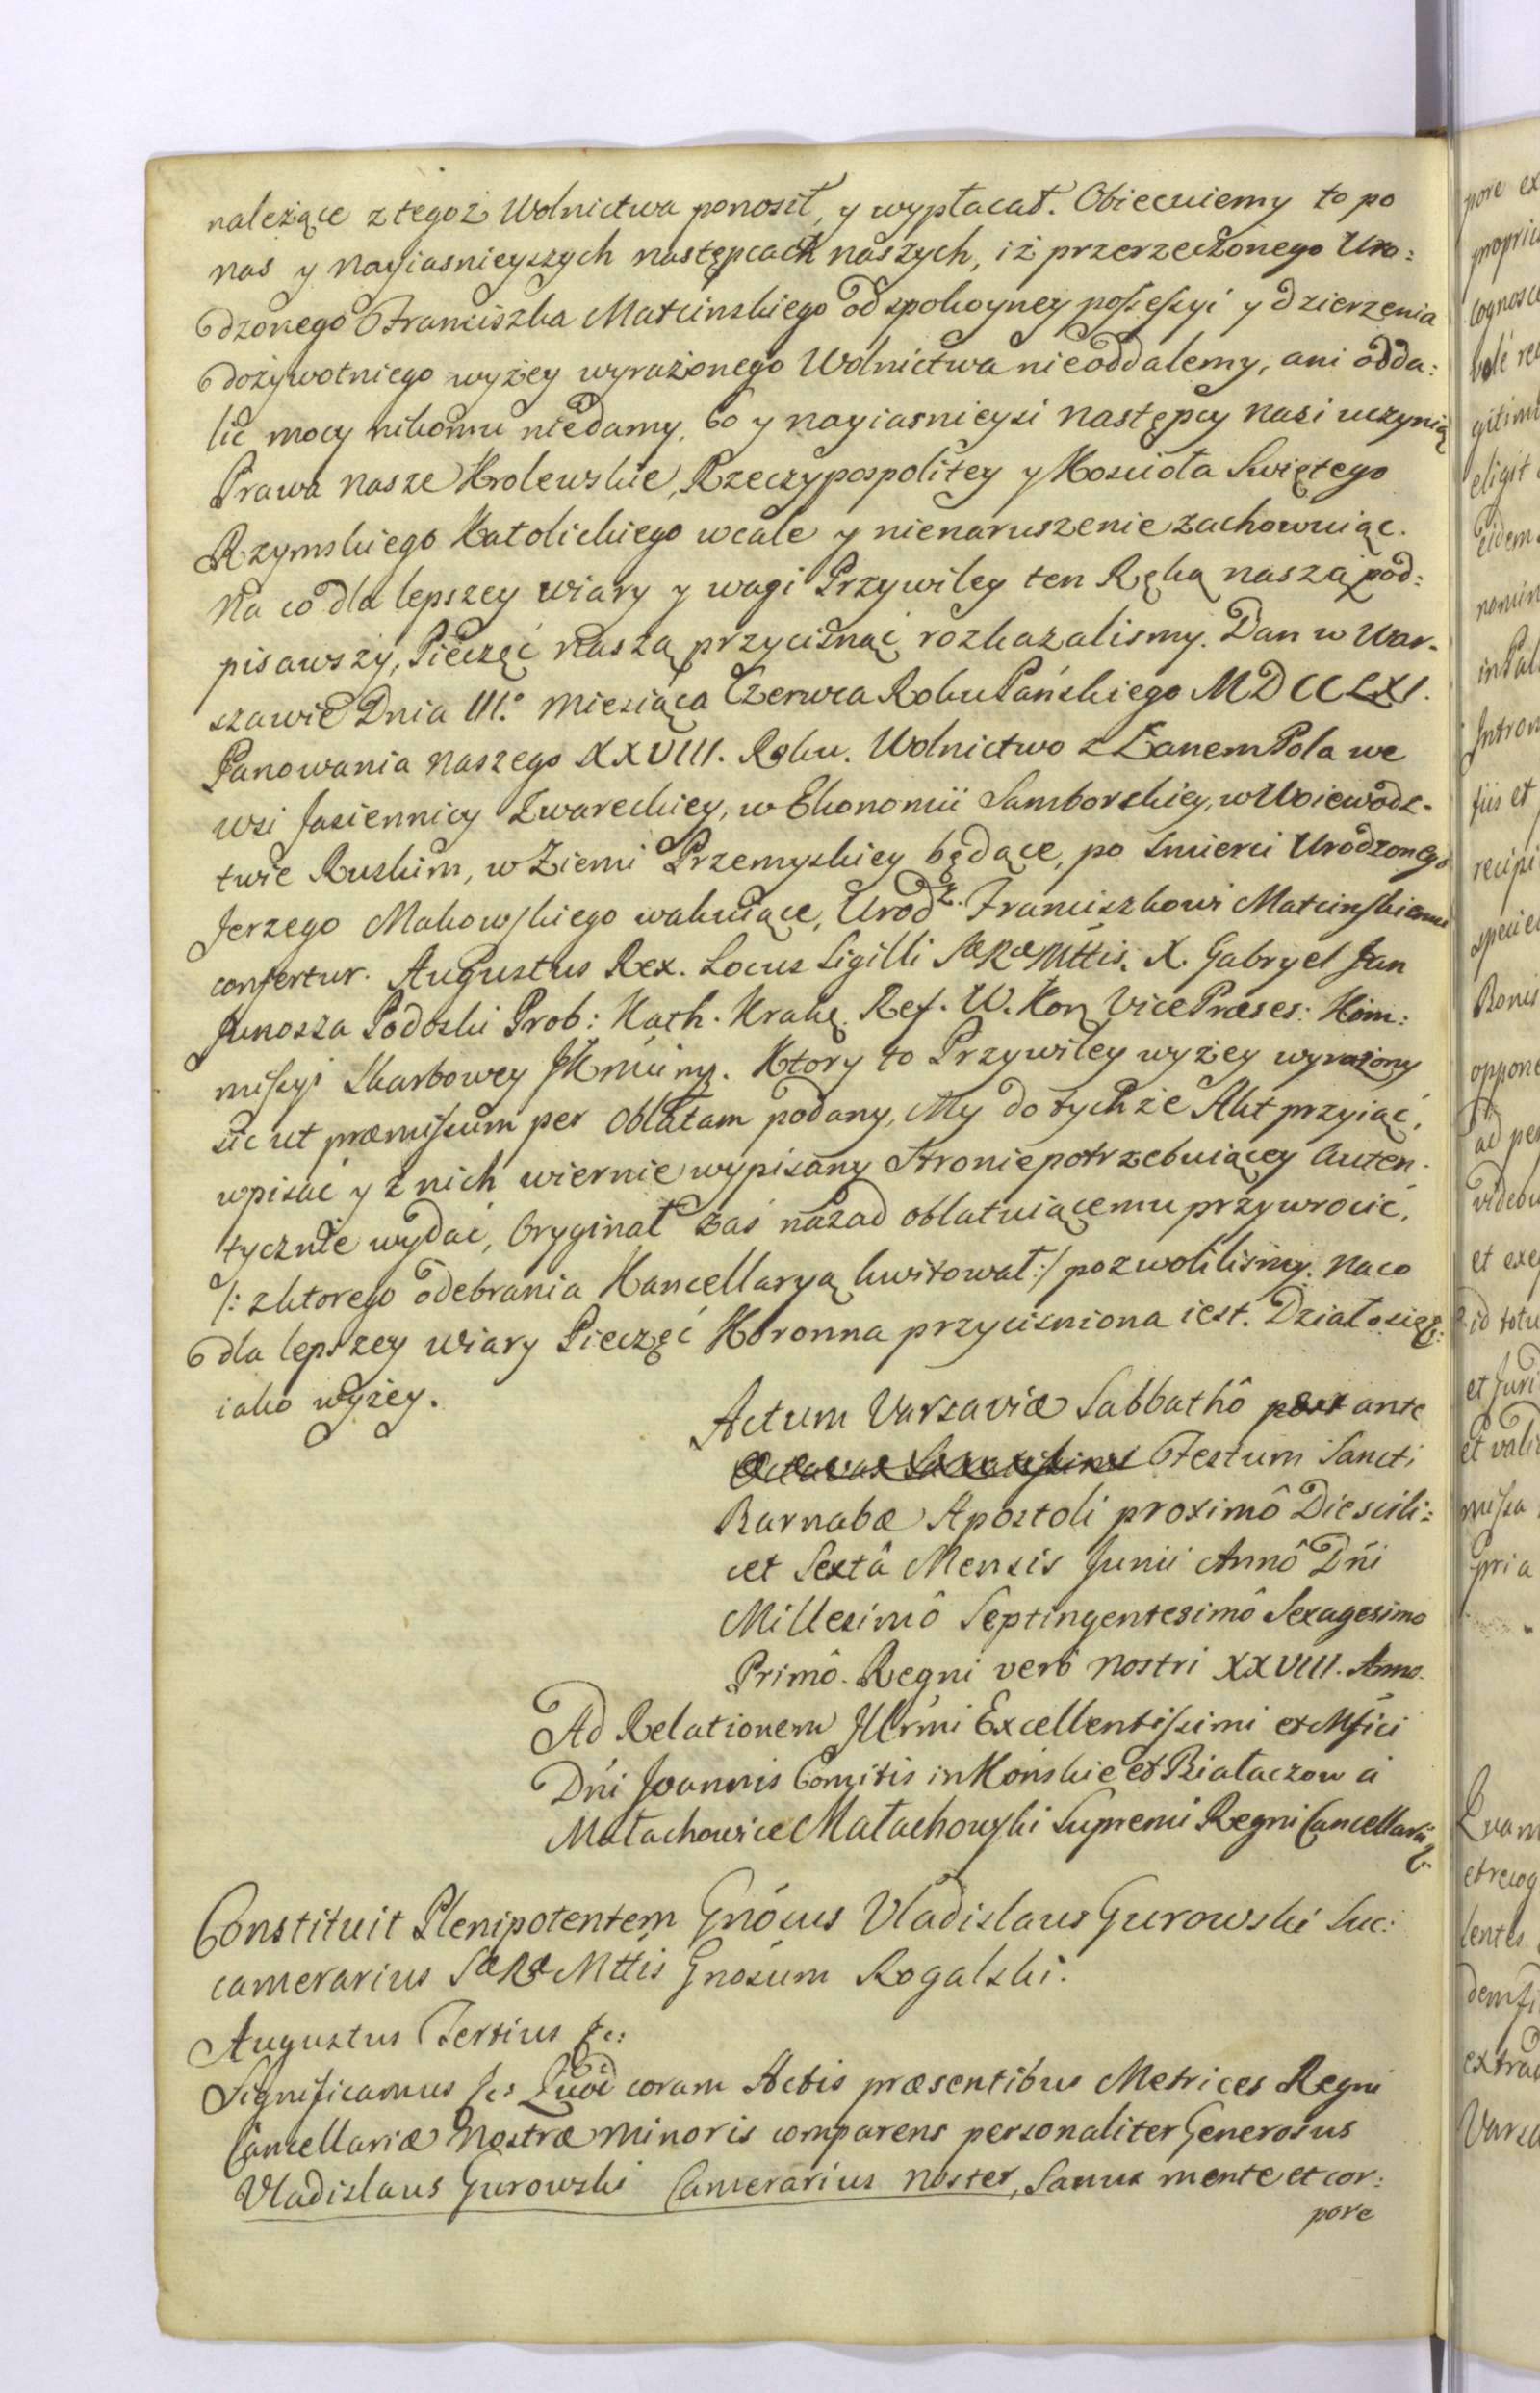 należące z tegoż Wolnictwa ponosił, y wypłacał. Obiecuiemy to po
nas y nayiasnieyszych następcach naszych, iż przerzeczonego Uro:
dzonego Franciszka Marcinskiego od spokoyney possessyi y dzierzenia
dożywotniego wyżey wyrażonego Wolnictwa nieoddalemy, ani odda:
lić mocy nikomu niedamy, Co y nayiasnieysi następcy nasi uczynią
Prawa nasze Krolewskie, Rzeczypospolitey y Koscioła Swiętego
Rzymskiego Katolickiego wcale y nienaruszenie zachowuiąc.
Na co dla lepszey wiary y wagi Przywiley ten Ręką naszą pod:
pisawszy, Pieczęć naszą przycisnąć rozkazalismy. Dan w War-
szawie Dnia III.° Miesiąca Czerwca Roku Pańskiego MDCCLXI.
Panowania naszego XXVIII. Roku. Wolnictwo z Łanem Pola we
wsi Jasiennicy Zwareckiey, w Ekonomii Samborskiey, w Woiewodz-
twie Ruskim, w Ziemi Przemyskiey będące, po smierci Urodzonego
Jerzego Makowskiego wakuiące, Urodz. Franciszkowi Marcinskiemu
confertur. Augustus Rex. Locus Sigilli SæRæMttis. X. Gabryel Jan
Junosza Podoski Prob: Kath. Krakę. Ref. W. Kor. Vice Præses: Kom:
missyi Skarbowey JKMciny. Ktory to Przywiley wyżey wyrażony
sic ut præmissum per Oblatam podany, My do tychże Akt przyiąć,
wpisać y z nich wiernie wypisany Stronie potrzebuiącey Auten-
tycznie wydać, Oryginał zaś nazad oblatuiącemu przywrocić,
/: z ktorego odebrania Kancellaryą kwitował :/ pozwolilismy. Na co
dla lepszey wiary Pieczęć Koronna przycisniona iest. Działo się:
iako wyżey.
Actum Varsaviæ Sabbathô post ante
Festum Sancti
Barnabæ Apostoli proximô Die scili:
cet Sextâ Mensis Junii Annô Dńi
Millesimô Septingentesimô Sexagesimo
Primô. Regni verô nostri XXVIII. Anno.
Ad Relationem Jllr̃mi Excellentissimi et Mfici
Dńi Joannis Comitis in Końskie et Białaczow à
Małachowice Małachowski Supremi Regni Cancellarii
Constituit Plenipotentem Gnõsus Vladislaus Gurowski Suc:
camerarius SæRæMttis Gnõsum Rogalski.
Augustus Tertius &c:
Significamus &c: Quod coram Actis præsentibus Metrices Regni
Cancellariæ Nostræ Minoris comparens personaliter Generosus
Vladislaus Gurowski Camerarius Noster, Sanus mente et cor:
pore